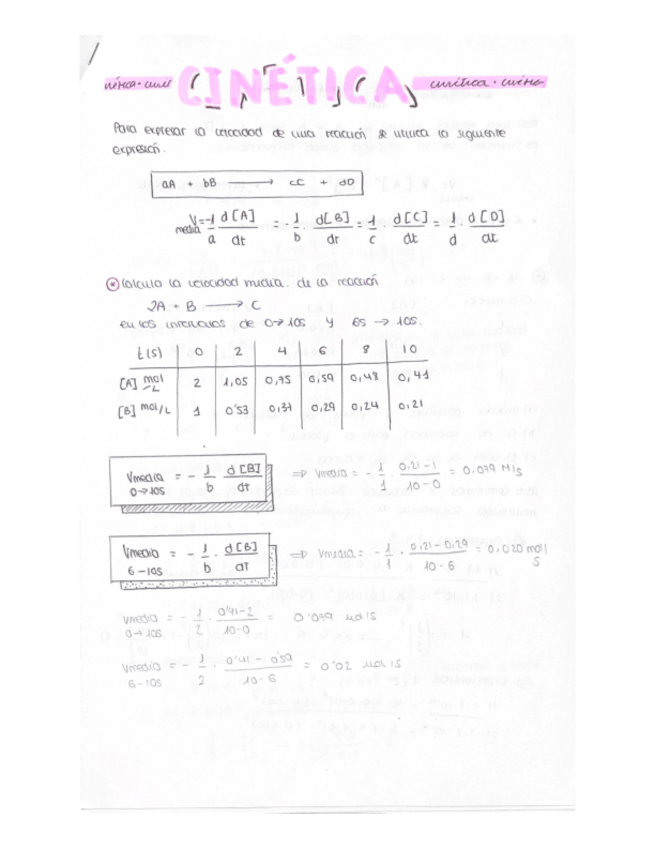 CINÉTICA
Para expresar la velocidad de una reacción se utiliza la siguiente
expresión.
aA + bB ⟶ cC + dD
V media = -1/a d[A]/dt = -1/b · d[B]/dt = 1/c · d[C]/dt = 1/d · d[D]/dt
Calcula la velocidad media de la reacción
2A + B ⟶ C
en los intervalos de 0→10s y 6s → 10s.
t(s) 0 2 4 6 8 10
[A] mol/L 2 1,05 0,75 0,59 0,48 0,41
[B] mol/L 1 0'53 0,37 0,29 0,24 0,21
Vmedia 0→10s = - 1/b d[B]/dt ⇒ Vmedia = - 1/1 · 0,21-1/10-0 = 0,079 M/s
Vmedia 6-10s = - 1/b · d[B]/dt ⇒ Vmedia = - 1/1 · 0,21-0,29/10-6 = 0,020 mol/s
Vmedia 0→10s = - 1/2 · 0'41-2/10-0 = 0'079 mol/s
Vmedia 6-10s = - 1/2 0'41 - 0'59/10-6 = 0'02 mol/s